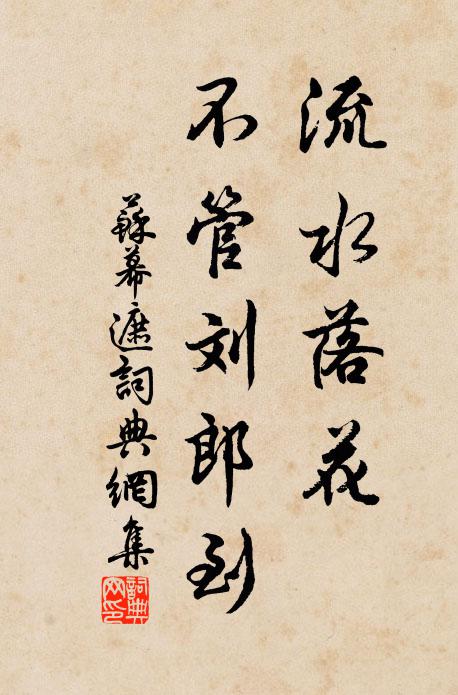 流水落花
不管刘郎到
蘇幕遮詞典網集
詞典网印